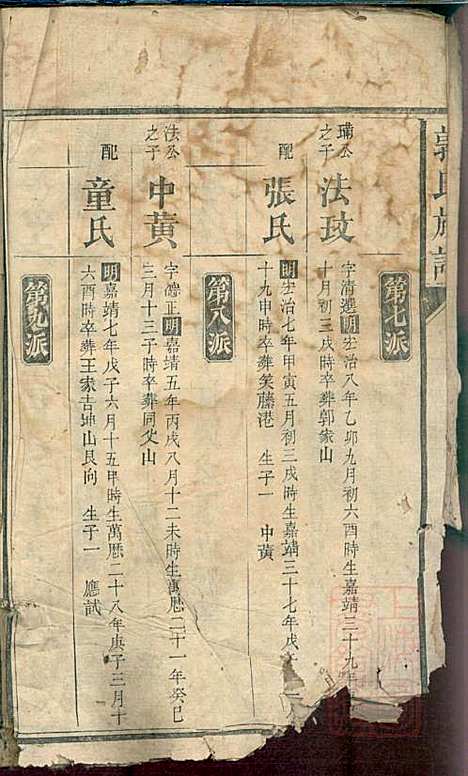 郭氏族譜
第七派
璊公之子 法玟
字清選明宏治八年乙卯九月初六酉時生嘉靖三十九年
十月初三戌時卒葬郭家山
配 張氏
明宏治七年甲寅五月初三戌時生嘉靖三十七年戊
十九申時卒葬笑藤港 生子一 中黄
第八派
法公之子 中黄
字德正明嘉靖五年丙戌八月十二未時生萬曆二十一年癸巳
三月十三子時卒葬同父山
配 童氏
明嘉靖七年戊子六月十五申時生萬曆二十八年庚子三月十
六酉時卒葬王家吉坤山艮向 生子一 應試
第九派